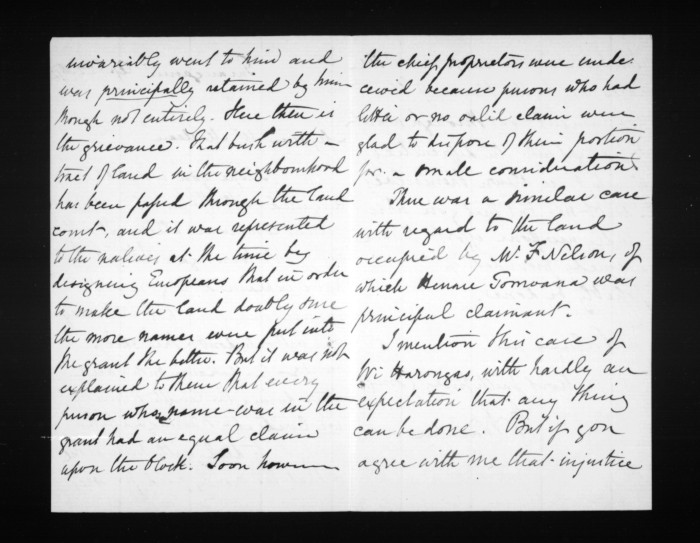 invariably went to him and
was principally retained by him
though not entirely. Here then is
the grievance. That bush with a
tract of land in the neighbourhood
has been passed through the land
court, and it was represented
to the natives at the time by
designing Europeans that in order
to make the land doubly sure
the more names were put into
the grant the better. But it was not
explained to them that every
person whose name was in the
grant had an equal claim
upon the block. Soon however
the chief proprietors were unde
ceived because persons who had
little or no valid claim were
glad to dispose of their portion
for a small consideration
There was a similar case
with regard to the land
occupied by Mr. F Nelson, of
which Henare Tomoana was
principal claimant.
I mention this case of
Wi Harongas, with hardly an
expectation that any thing
can be done. But if you
agree with me that injustice